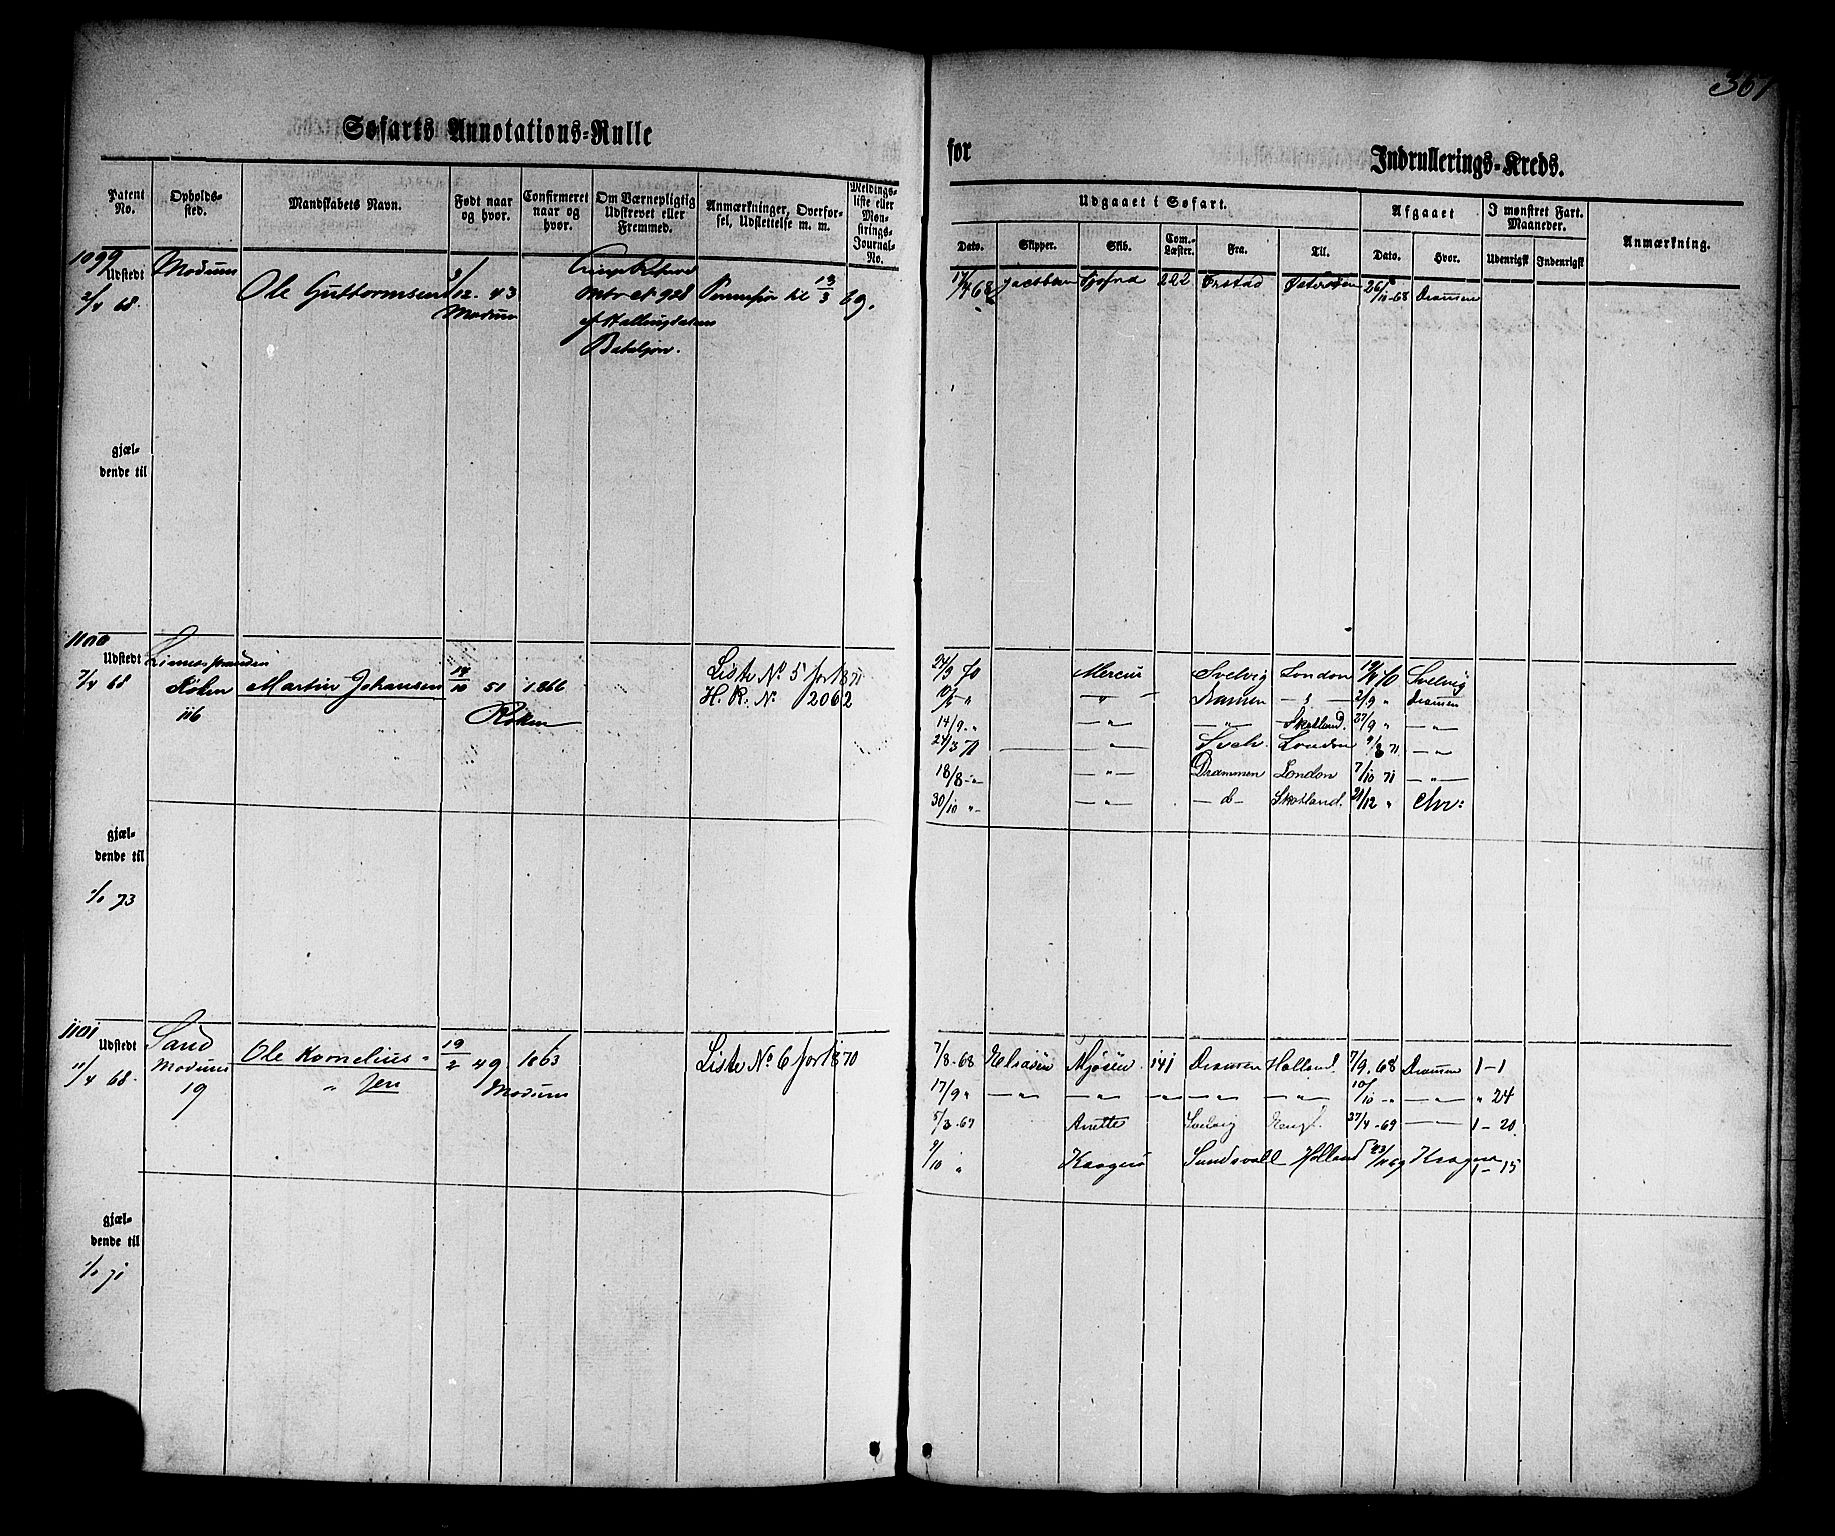 367
Søfarts Annotations-Rulle
for
Indrullerings-Kreds.
Patent No.
Opholdssted.
Mandskabets Navn.
Født naar og hvor.
Confirmeret naar og hvor.
Om Værnepligtig Udskrevet eller Fremmed.
Anmærkninger, Overførsel, Udslettelse m. m.
Meldingsliste eller Mønstrings-Journal-No.
Udgaaet i Søfart.
Afgaaet
I mønstret Fart. Maaneder.
Anmærkning.
Dato.
Skipper.
Skib.
Com.-Læster.
Fra.
Til.
Dato.
Hvor.
Udenrigsk
Indenrigsk
1099
Udstedt
2/4 68.
Modum
Ole Guttormsen
12. 43
Modum
af Hallingdalens
Bataljon.
til 13/3 69.
17/4 68
Jacobsen
222
26/10-68
Dramen
gjældende til
1100
Udstedt
7/4 68
Røken
116
Martin Johansen
14/10 51
1866
Røken
Liste No 5 for 1871
H. R. No. 2062
24/3 70 Mercur Svelvig London Svelvig
" Dramen 2/9 " Dramen
14/9 " — " — — " — Skotland. 27/9 " — " —
24/3 71 — " — London 71 — " —
18/8 - " - — " — Drammen London 7/10 71 — " —
30/10 " — " — — d — Skotland. 21/12 " Chr:
gjældende til
1/1 73
1101
Udstedt
11/4 68.
Sand
Modum
19
Ole Kornelius-
" sen
19/2 49
1863
Modum
Liste No 6 for 1870
7/8-68 Mjøsen 141 Dramen Holland. 7/9. 68 Dramen 1-1
17/9 " — " — — " — — " — — " — — " — 10/10 - " — " — " 24
5/3-69 Anette Svelvig Engl. 27/4-69 — " — 1-20.
9/10 " Kragerø Sundsvall Holland 23/11 69 Kragerø 1-15
gjældende til
1/1 71